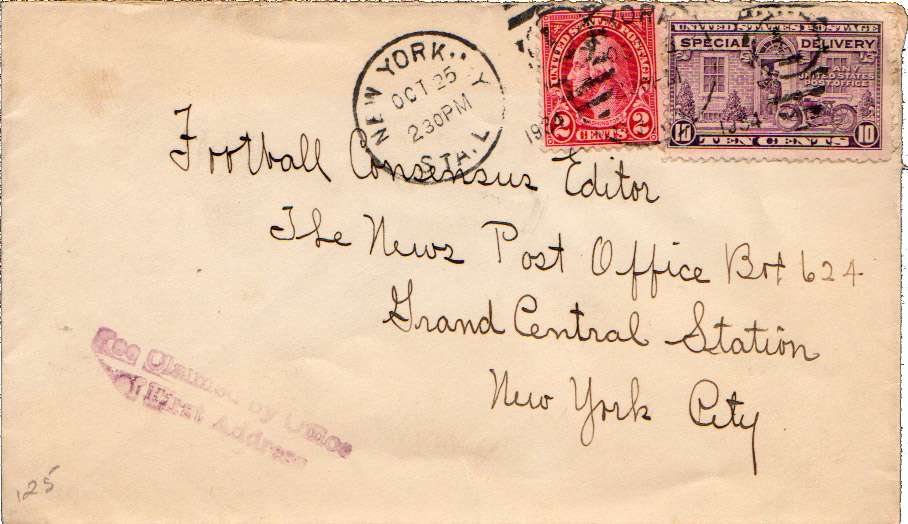 NEW YORK, N.Y.
OCT 25
2 30 PM
STA. L
UNITED STATES POSTAGE
WASHINGTON
2 CENTS 2
UNITED STATES POSTAGE
SPECIAL DELIVERY
ANY
UNITED STATES
POST OFFICE
10 TEN CENTS 10
Football Consensus Editor
The News Post Office Box 624
Grand Central Station
New York City
Fee Claimed by Office
of First Address
.25